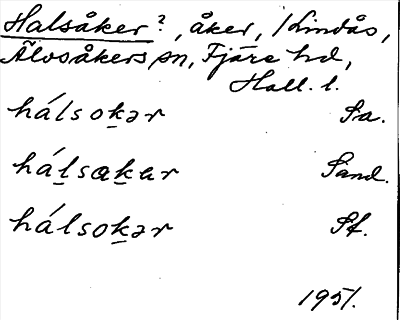 Halsåker?, åker, /Lindås,
Älvsåkers sn, Fjäre hd,
Hall. l.
hálsok̲ər Sa.
hál̲sak̲ar Sand.
hálsok̲ər Sf.
1951.